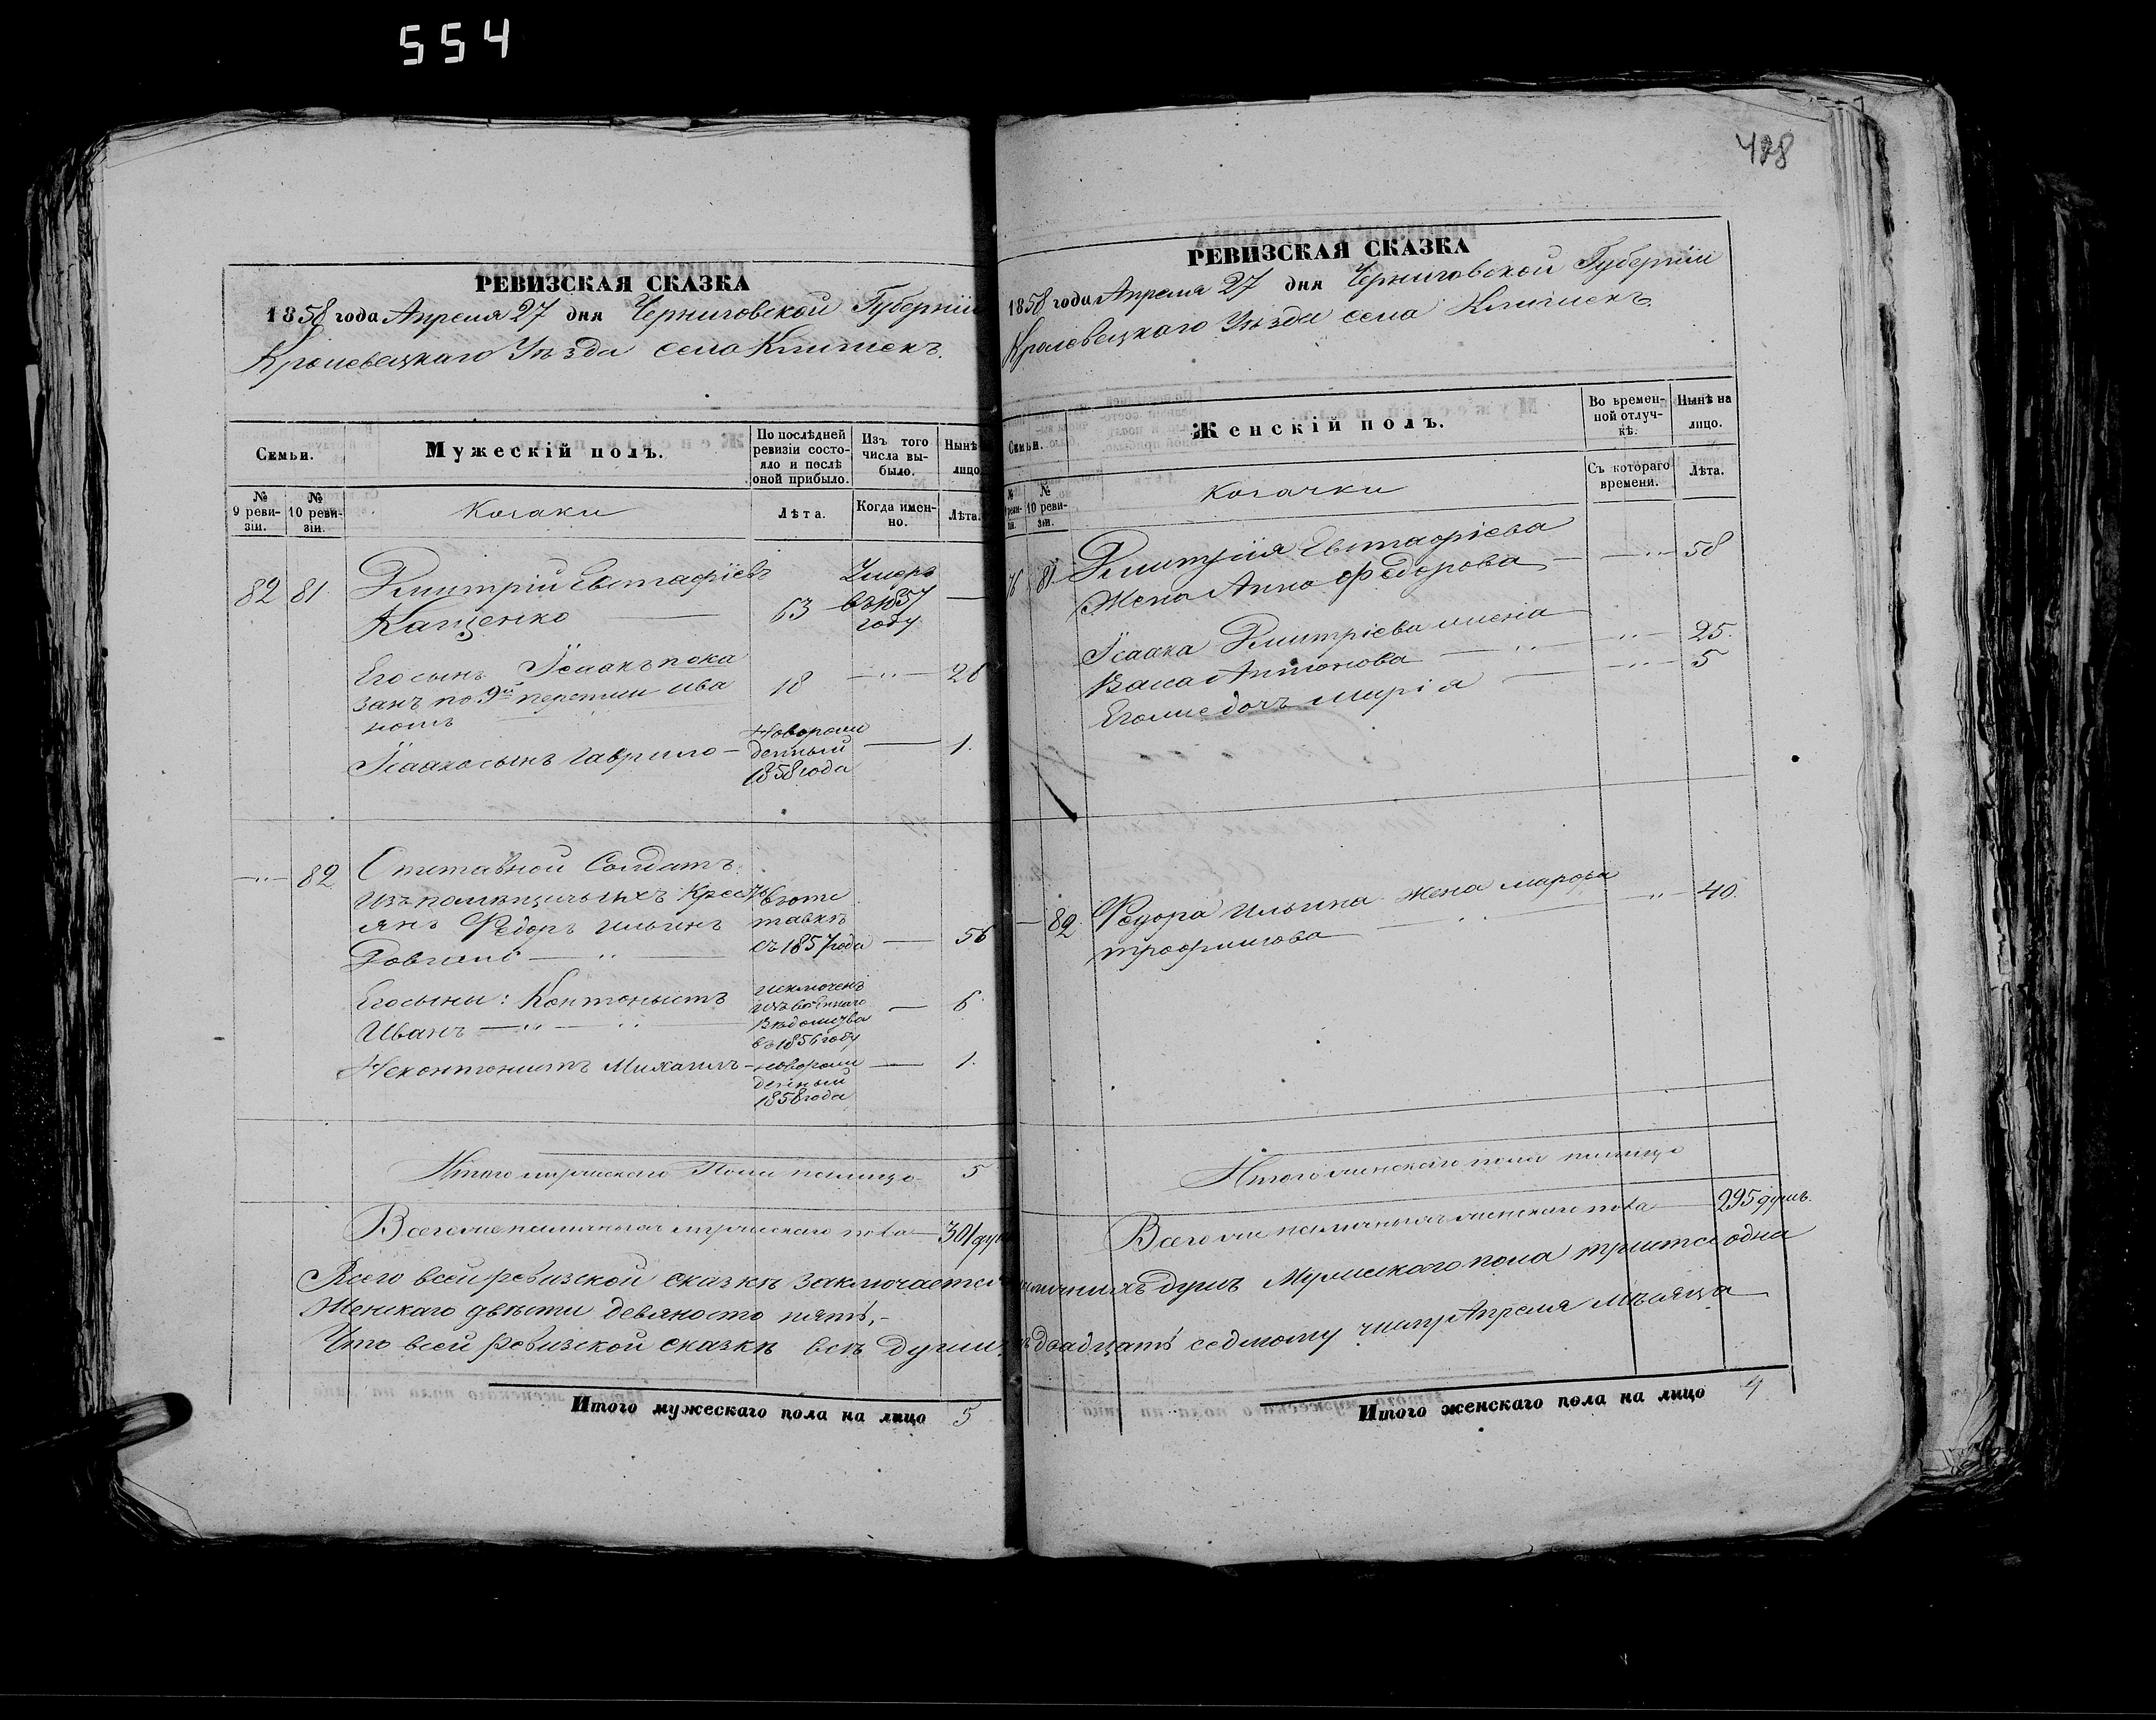 554
478
РЕВИЗСКАЯ СКАЗКА
1858 года Апреля 27 дня Черниговской Губерніи
Кролевецкаго Уѣзда села Клишекъ.
Семьи.
Мужескій полъ.
По послѣдней ревизіи состояло и послѣ оной прибыло.
Изъ того числа выбыло.
Нынѣ лицо
№ 9 ревизіи.
№ 10 ревизіи.
Козаки
Лѣта.
Когда именно.
Лѣта.
82 81. Дмитрій Евстафіевъ Умеръ
Кащенко — 63 въ 1857 —
году
Его сынъ Ісаакъ пока
занъ по 9й переписи Ива 18 — 28
номъ
Ісаака сынъ Гаврило — Новорожденный 1858 года — 1.
82 Отставной Солдатъ
изъ помѣщичьихъ Кресть въ отс
янъ Федоръ Ильинъ тавкѣ
Довгий — съ 1857 года — 56
Его сыны: Кантонистъ исключенъ
Иванъ — изъ военнаго — 6.
Вѣдомства
въ 1856 году
Некантонистъ Михаилъ — новорожденный 1858 года — 1.
Итого мужескаго Пола налицо 5
Всего же наличныхъ мужескаго пола — 301 ду
Итого мужескаго пола на лицо 5
РЕВИЗСКАЯ СКАЗКА
1858 года Апреля 27 дня Черниговской Губерніи
Кролевецкаго Уѣзда села Клишекъ.
Семьи.
Женскій полъ.
Во временной отлучкѣ.
Нынѣ на лицо.
№ 10 ревизіи.
Козачки
Съ котораго времени.
Лѣта.
76 81. Дмитрія Евстафіева
Жена Анна Федорова — 58
Ісаака Дмитріева жена
Васса Антонова — 25.
Его же дочь Марія — 5
82. Федора Ильина жена Марфа — 40.
Трофимова
Итого женскаго пола налицо
Всего же наличныхъ женскаго пола 295 душъ.
Всего въ сей ревизской сказкѣ заключается наличныхъ душъ Мужескаго пола триста одна
Женскаго двѣсти девяносто пять,
Что в сей ревизской сказкѣ всѣ души двадцать седмому числу Апреля мѣсяца
Итого женскаго пола на лицо 4